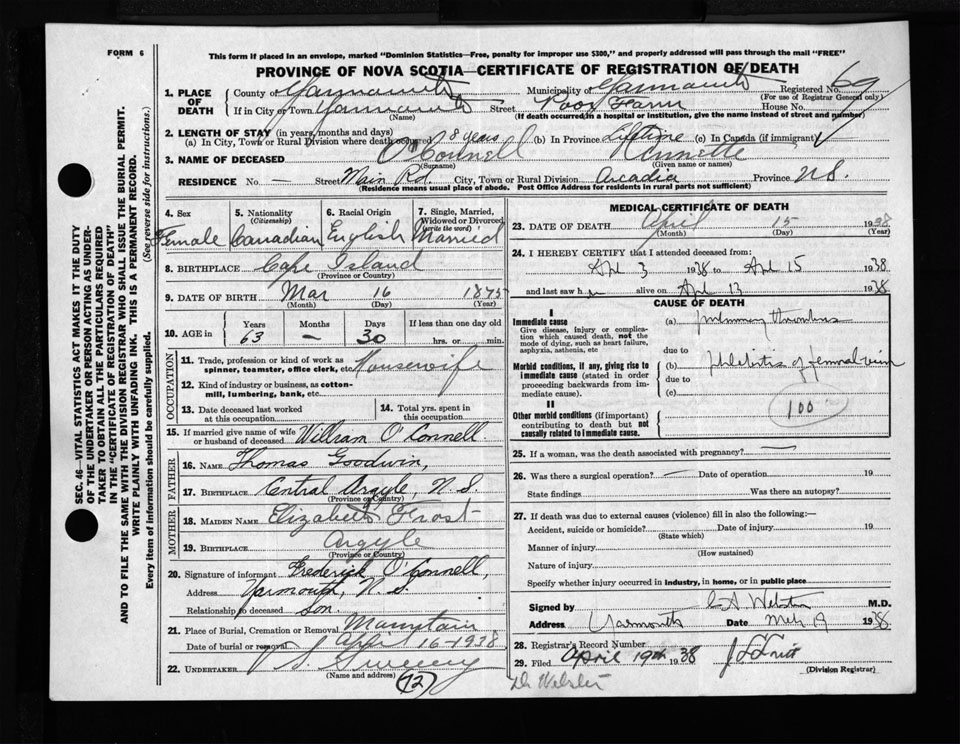 FORM 6
This form if placed in an envelope, marked "Dominion Statistics—Free, penalty for improper use $300," and properly addressed will pass through the mail "FREE"
PROVINCE OF NOVA SCOTIA—CERTIFICATE OF REGISTRATION OF DEATH
1. PLACE OF DEATH County of Yarmouth Municipality of Yarmouth Registered No. 69
(For use of Registrar General only)
If in City or Town Yarmouth Street Poor Farm House No.
(Name) (If death occurred in a hospital or institution, give the name instead of street and number)
2. LENGTH OF STAY (in years, months and days)
(a) In City, Town or Rural Division where death occurred 8 years (b) In Province Lifetime (c) In Canada (if immigrant)
3. NAME OF DECEASED O'Connell Annette
(Surname) (Given name or names)
RESIDENCE No. — Street Main Rd. City, Town or Rural Division Arcadia Province N.S.
(Residence means usual place of abode. Post Office Address for residents in rural parts not sufficient)
4. Sex 5. Nationality (Citizenship) 6. Racial Origin 7. Single, Married, Widowed or Divorced (write the word)
Female Canadian English Married
8. BIRTHPLACE Cape Island
(Province or Country)
9. DATE OF BIRTH Mar 16 1875
(Month) (Day) (Year)
10. AGE in Years Months Days If less than one day old
63 — 30 hrs. or min.
OCCUPATION
11. Trade, profession or kind of work as spinner, teamster, office clerk, etc. Housewife
12. Kind of industry or business, as cotton-mill, lumbering, bank, etc.
13. Date deceased last worked at this occupation
14. Total yrs. spent in this occupation
15. If married give name of wife or husband of deceased William O'Connell
FATHER
16. NAME Thomas Goodwin,
17. BIRTHPLACE Central Argyle, N.S.
(Province or Country)
MOTHER
18. MAIDEN NAME Elizabeth Frost
19. BIRTHPLACE Argyle
(Province or Country)
20. Signature of informant Frederick O'Connell,
Address Yarmouth, N.S.
Relationship to deceased Son.
21. Place of Burial, Cremation or Removal Mountain
Date of burial or removal April 16-1938
22. UNDERTAKER V S Sweeny
(Name and address) (12)
MEDICAL CERTIFICATE OF DEATH
23. DATE OF DEATH April 15 1938
(Month) (Day) (Year)
24. I HEREBY CERTIFY that I attended deceased from:
Apl 3 1938 to Apl 15 1938
and last saw her alive on Apl 13 1938
CAUSE OF DEATH
I
Immediate cause
Give disease, injury or complication which caused death, not the mode of dying, such as heart failure, asphyxia, asthenia, etc
(a) pulmonary thrombus
due to
Morbid conditions, if any, giving rise to immediate cause (stated in order proceeding backwards from immediate cause).
(b) Phlebitis of femoral vein
due to
(c)
II
100
Other morbid conditions (if important) contributing to death but not causally related to immediate cause.
25. If a woman, was the death associated with pregnancy? —
26. Was there a surgical operation? — Date of operation 19
State findings Was there an autopsy?
27. If death was due to external causes (violence) fill in also the following:—
Accident, suicide or homicide? Date of injury 19
(State which)
Manner of injury
(How sustained)
Nature of injury
Specify whether injury occurred in industry, in home, or in public place
Signed by C A Webster M.D.
Address Yarmouth Date 19 1938
28. Registrar's Record Number
29. Filed April 19th 1938
(Division Registrar)
Dr Webster
SEC. 46—VITAL STATISTICS ACT MAKES IT THE DUTY OF THE UNDERTAKER OR PERSON ACTING AS UNDERTAKER TO OBTAIN ALL THE PARTICULARS REQUIRED IN THE "CERTIFICATE OF REGISTRATION OF DEATH" AND TO FILE THE SAME WITH THE DIVISION REGISTRAR WHO SHALL ISSUE THE BURIAL PERMIT.
WRITE PLAINLY WITH UNFADING INK. THIS IS A PERMANENT RECORD.
Every item of information should be carefully supplied. (See reverse side for instructions.)